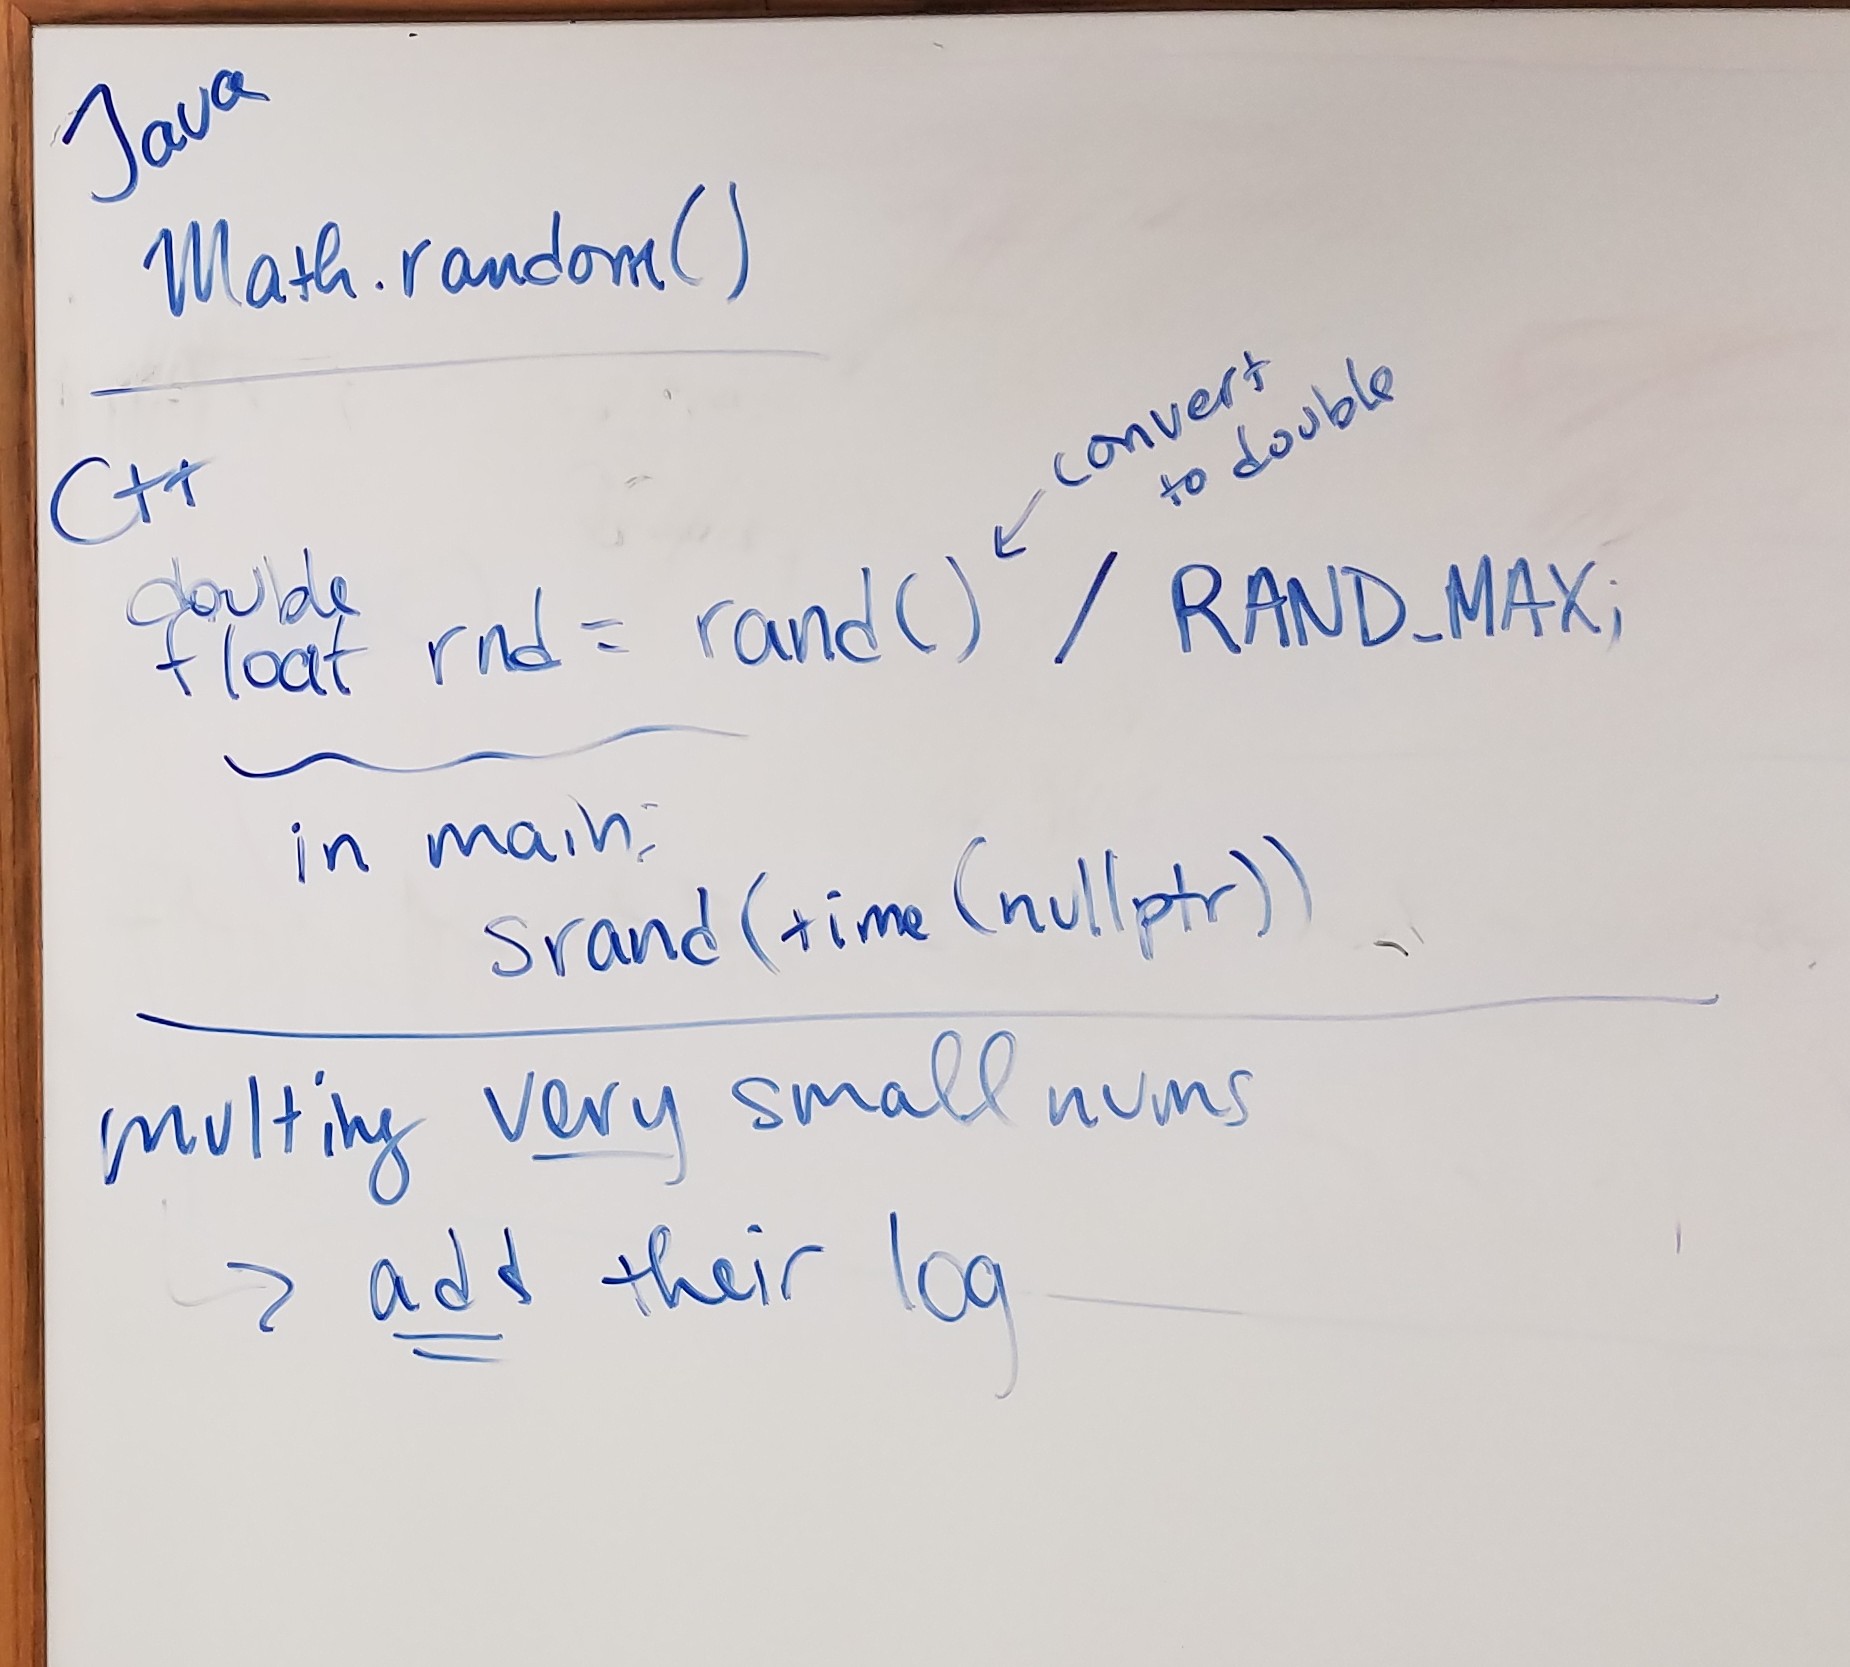 Java
Math.random()
C++
convert
to double
double
float rnd = rand() / RAND_MAX;
in main:
srand(time(nullptr))
multing very small nums
→ add their log